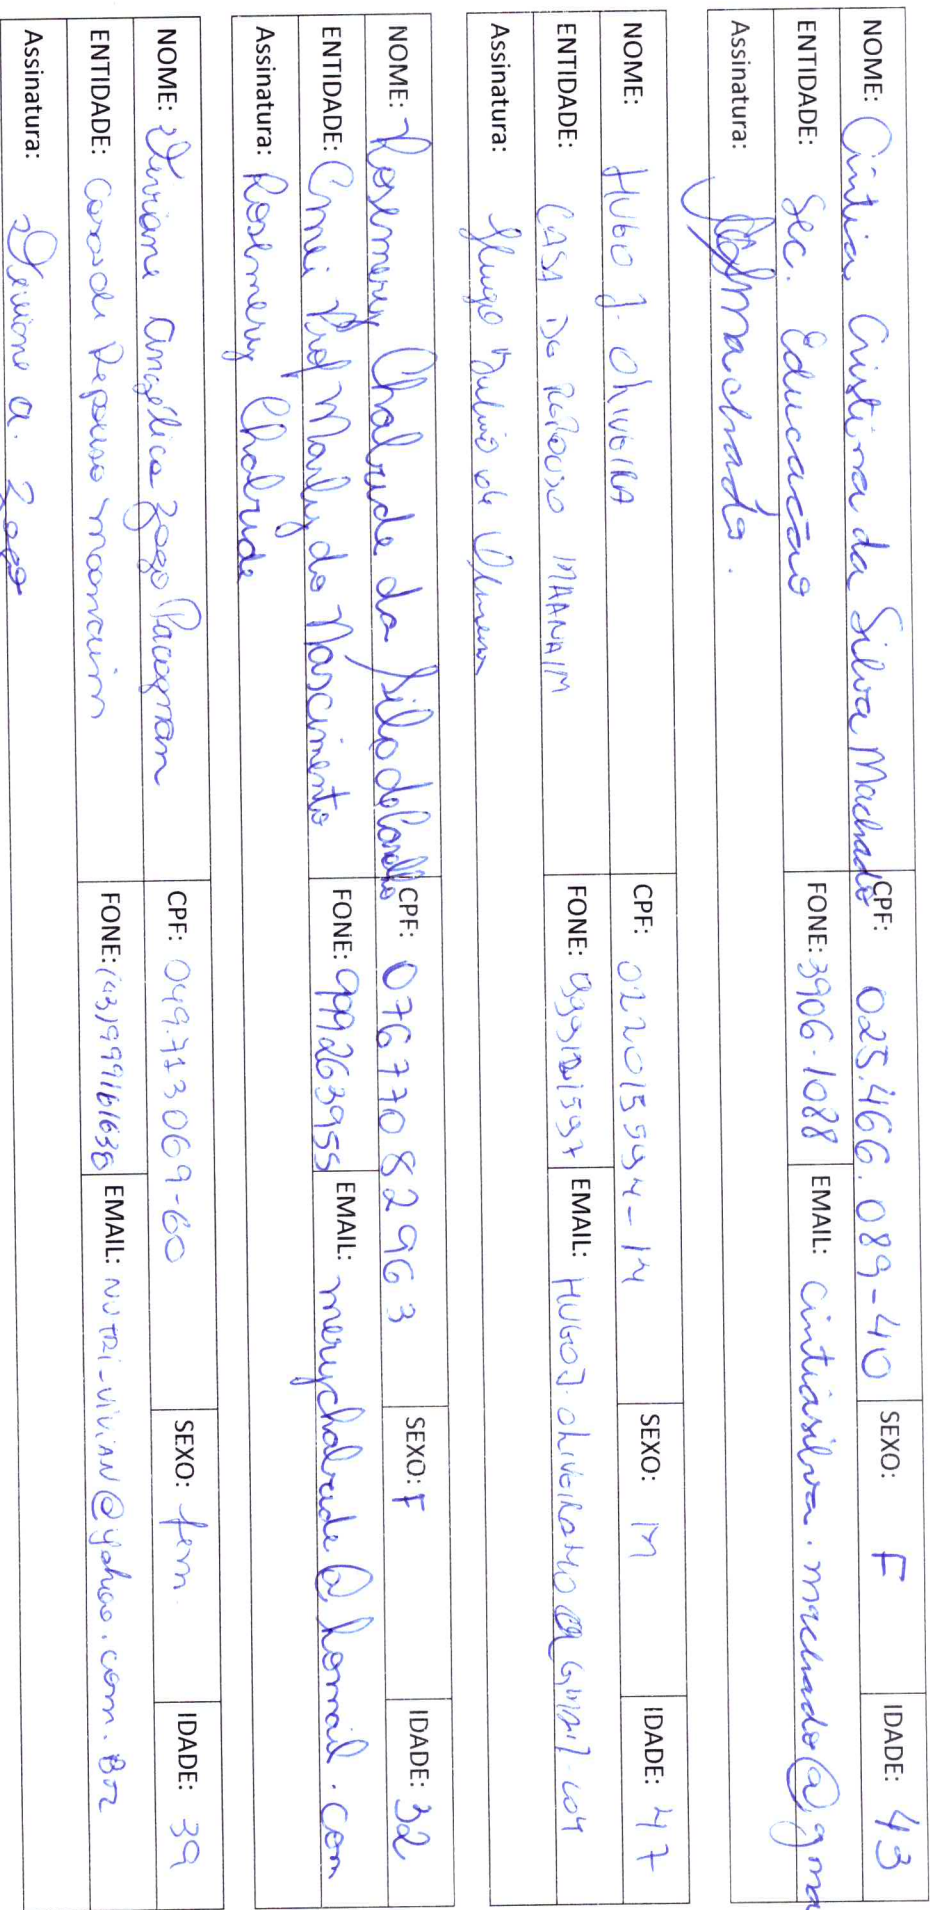 NOME: Cintia Cristina da Silva Machado CPF: 025.466.089-40 SEXO: F IDADE: 43
ENTIDADE: Sec. Educação FONE: 3906-1088 EMAIL: cintiasilva.machado@gma
Assinatura: Machado.
NOME: HUGO J. OLIVEIRA CPF: 022015994-14 SEXO: M IDADE: 47
ENTIDADE: CASA DE REPOUSO MAANAIM FONE: EMAIL: HUGOJ.OLIVEIRAHJO@GMAIL.COM
Assinatura: Hugo de Oliveira
NOME: Rosemery Chalude da Silva de Carvalho CPF: 07677082963 SEXO: F IDADE: 32
ENTIDADE: Cmei Prof Marly do Nascimento FONE: 999263955 EMAIL: merychalude@homail.com
Assinatura: Rosemery Chalude
NOME: Viviane Angélica Zago Paccagnan CPF: 049.713069-60 SEXO: fem. IDADE: 39
ENTIDADE: Casa de Repouso Maanaim FONE: (43)999161630 EMAIL: NUTRI-VIVIAN@yahoo.com.BR
Assinatura: Viviane A. Zago